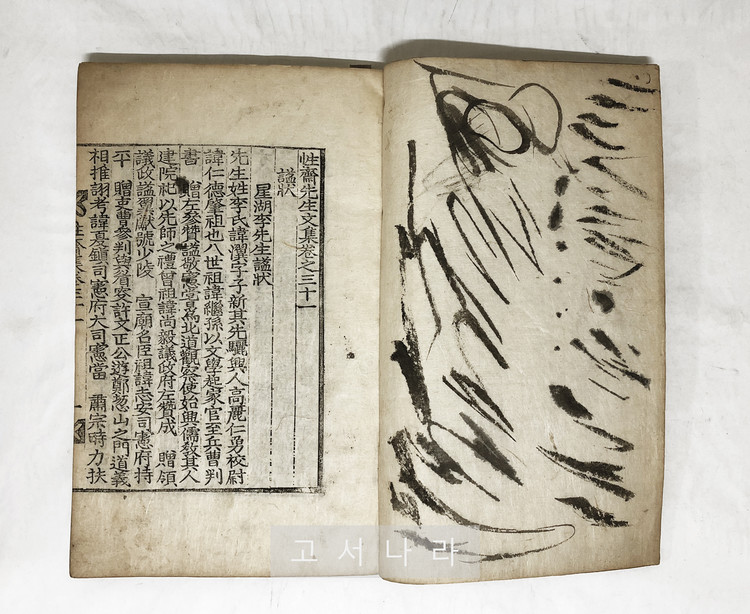 性齋先生文集卷之三十一
諡狀
星湖李先生諡狀
先生姓李氏諱瀷字子新其先驪興人高麗仁勇校尉
諱仁德肇祖也八世祖諱繼孫以文學起家官至兵曹判
書 贈左參贊諡敬憲嘗爲北道觀察使始興儒敎其人
建院祀以先師之禮曾祖諱尙毅議政府左贊成 贈領
議政諡翼獻號少陵 宣廟名臣祖諱志安司憲府持
平 贈吏曹參判與眉叟許文正公遊鄭蔥山之門道義
相推詡考諱夏鎭司憲府大司憲當 肅宗時力扶
고서나라